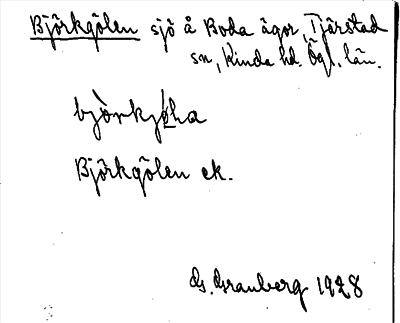 Björkgölen sjö å Boda ägor, Tjärstad
sn, Kinda hd. Ögl. län.
björkjøha
Björkgölen ek.
G. Granberg 1928